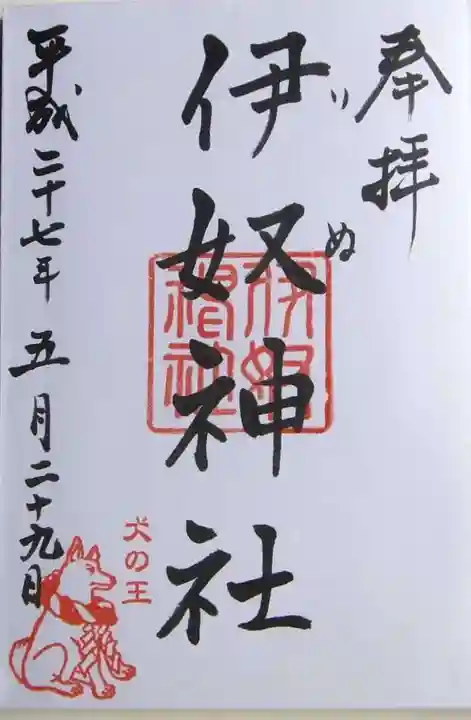 奉拝
伊奴神社
いぬ
伊奴神社
平成二十七年五月二十九日
犬の王